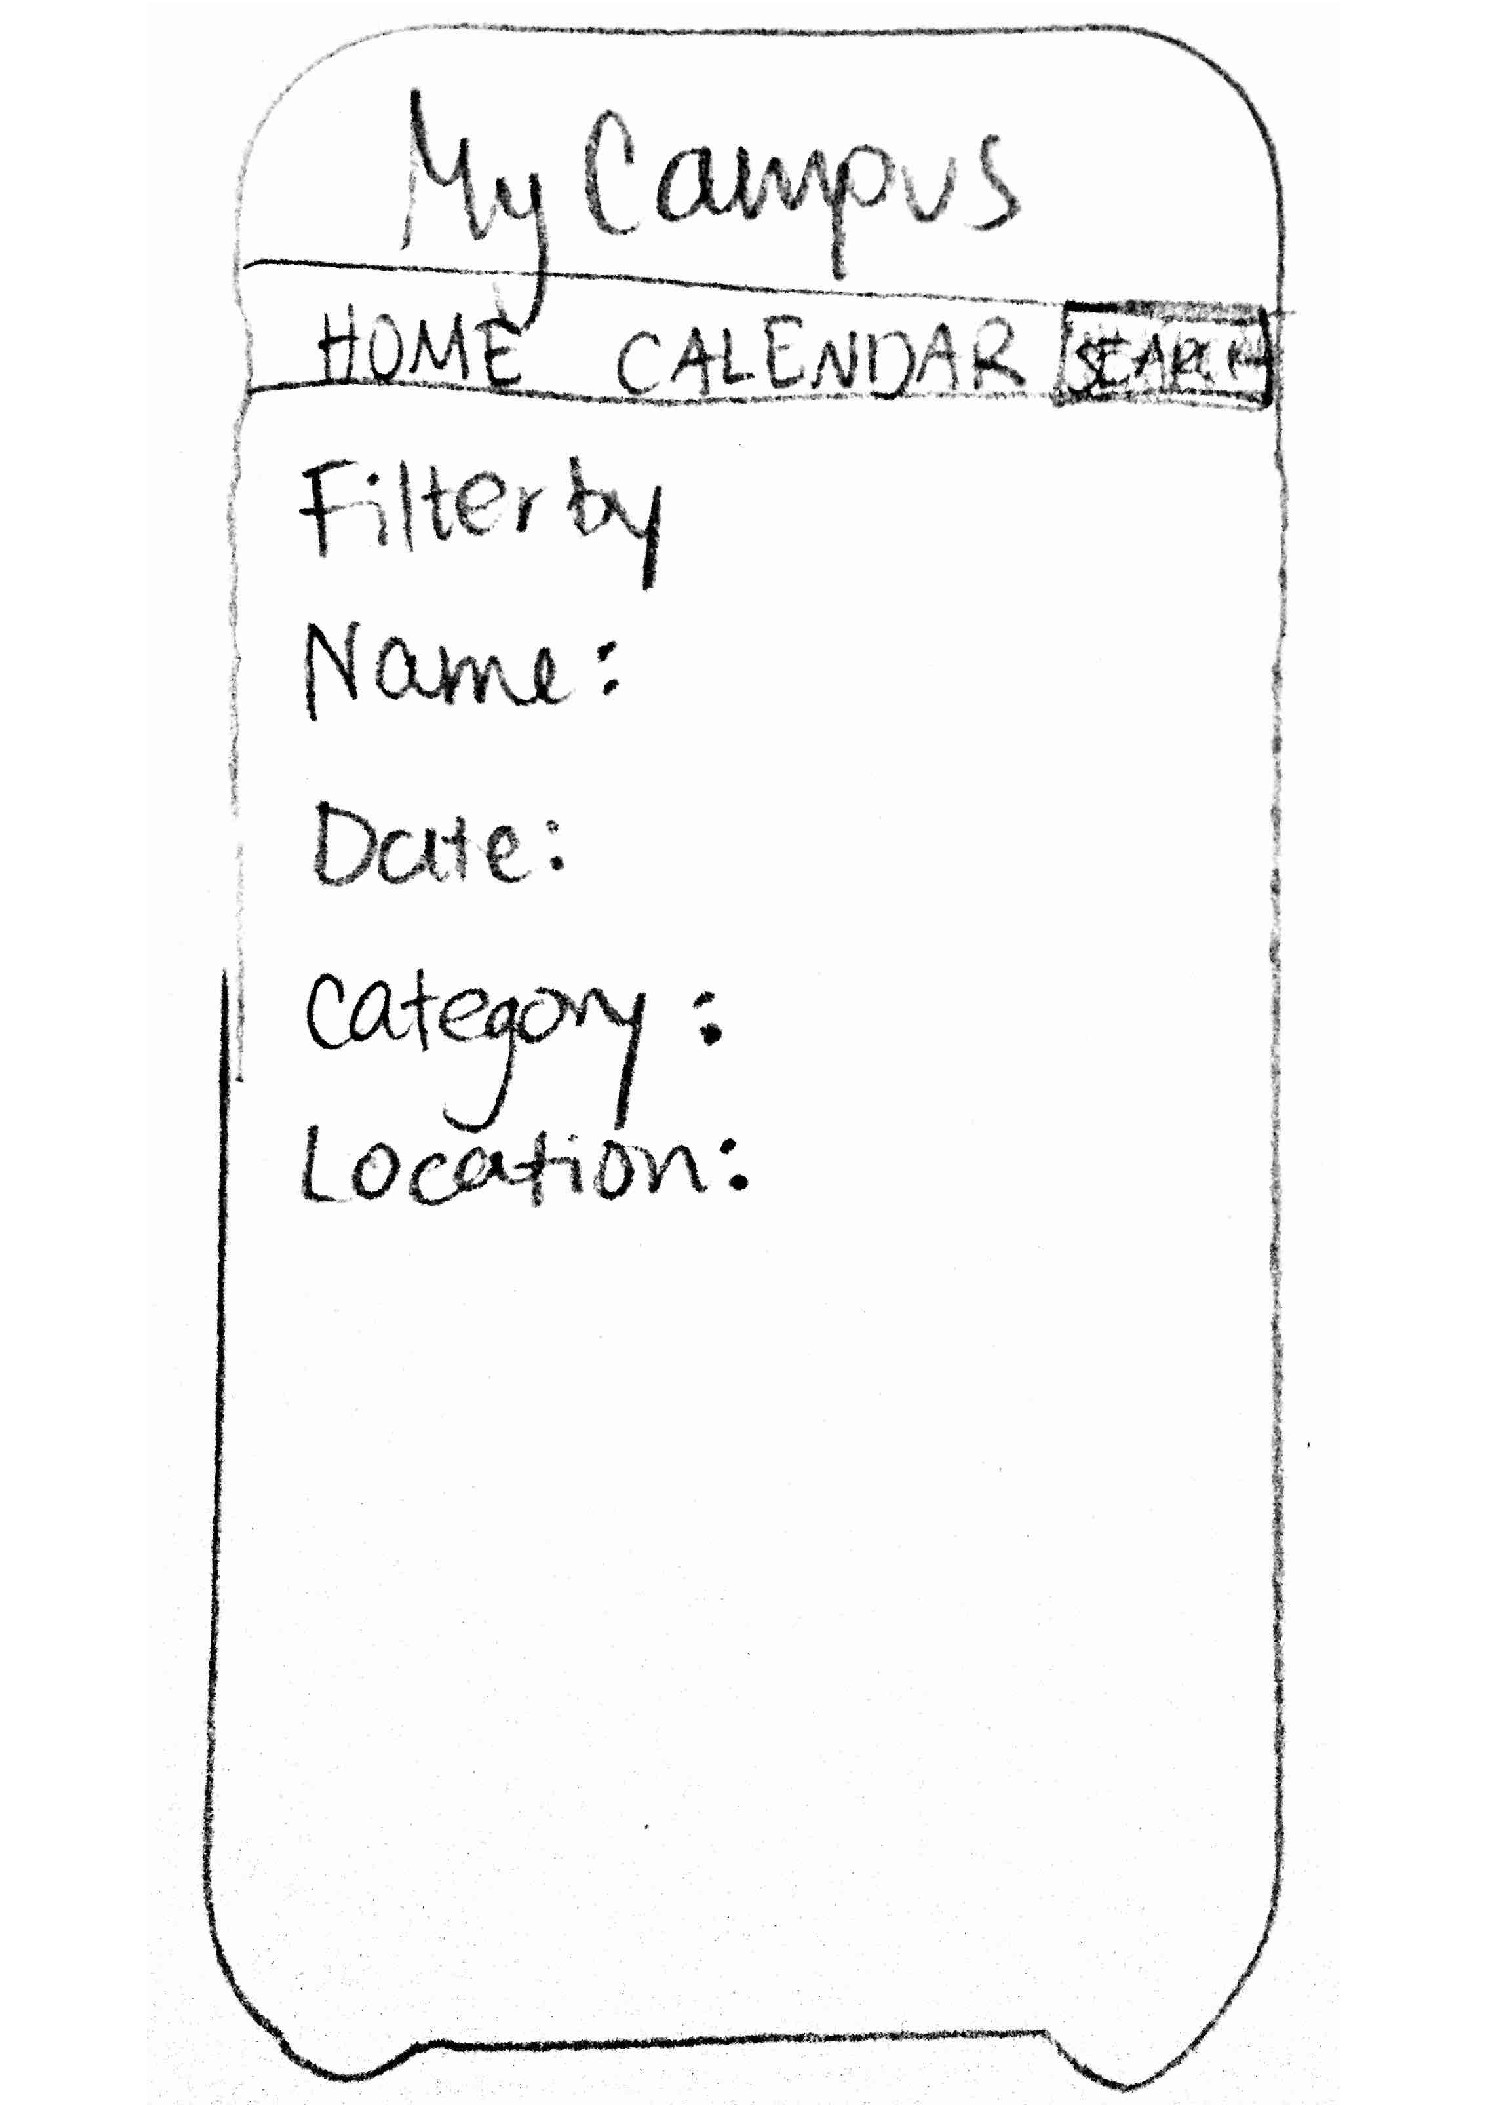 My Campus
HOME CALENDAR SEARCH
Filter by
Name:
Date:
Category:
Location: